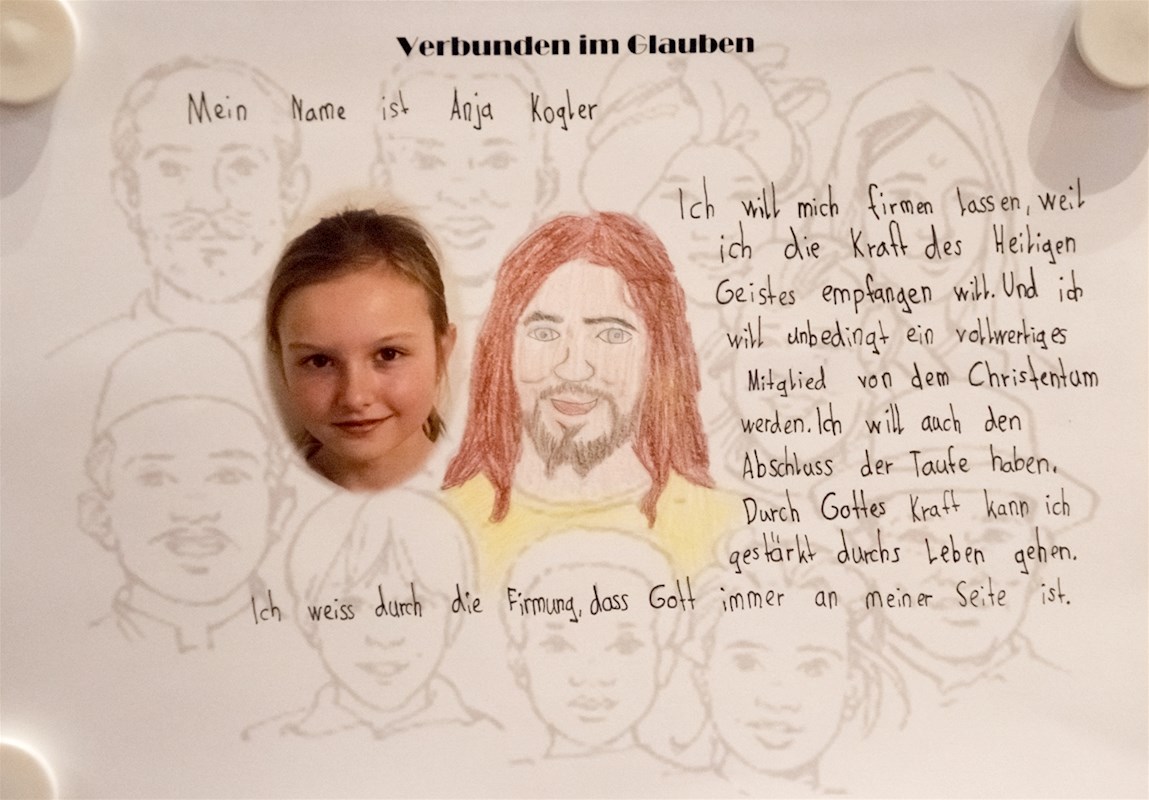 Verbunden im Glauben
Mein Name ist Anja Kogler
Ich will mich firmen lassen, weil
ich die Kraft des Heiligen
Geistes empfangen will. Und ich
will unbedingt ein vollwertiges
Mitglied von dem Christentum
werden. Ich will auch den
Abschluss der Taufe haben.
Durch Gottes Kraft kann ich
gestärkt durchs Leben gehen.
Ich weiss durch die Firmung, dass Gott immer an meiner Seite ist.